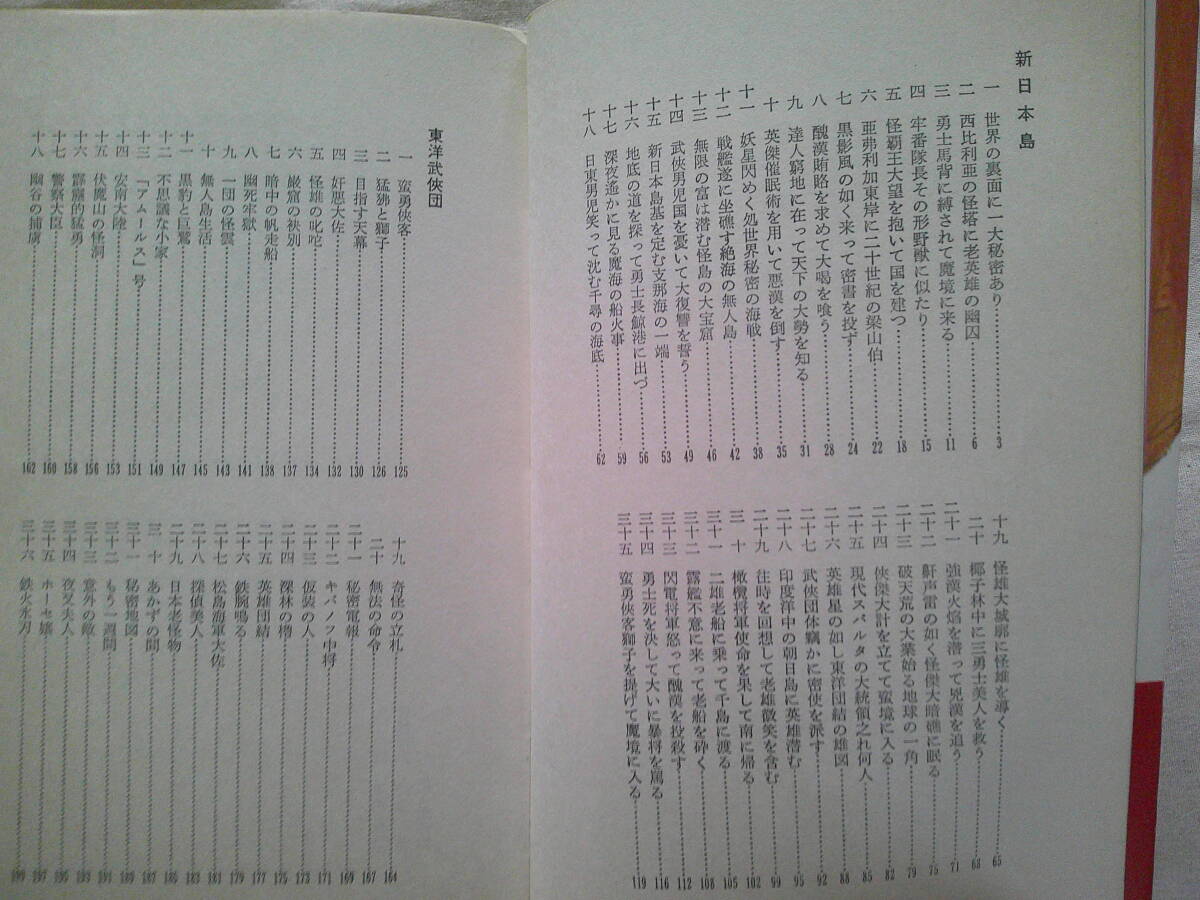 新日本島
一 世界の裏面に一大秘密あり……3
二 西比利亜の怪塔に老英雄の幽囚……6
三 勇士馬背に縛されて魔境に来る……11
四 牢番隊長その形野獣に似たり……15
五 怪覇王大望を抱いて国を建つ……18
六 亜弗利加東岸に二十世紀の梁山伯……22
七 黒影風の如く来って密書を投ず……24
八 醜漢賄賂を求めて大喝を喰う……28
九 達人窮地に在って天下の大勢を知る……31
十 英傑催眠術を用いて悪漢を倒す……35
十一 妖星閃めく処世界秘密の海戦……38
十二 戦艦遂に坐礁す絶海の無人島……42
十三 無限の富は潜む怪島の大宝窟……46
十四 武俠男児国を憂いて大復讐を誓う……49
十五 新日本島基を定む支那海の一端……53
十六 地底の道を探って勇士長鯨港に出づ……56
十七 深夜遙かに見る魔海の船火事……59
十八 日東男児笑って沈む千尋の海底……62
十九 怪雄大城廓に怪雄を導く……65
二十 椰子林中に三勇士美人を救う……68
二十一 強漢火焰を潜って兇漢を追う……71
二十二 鼾声雷の如く怪傑大暗礁に眠る……75
二十三 破天荒の大業始る地球の一角……79
二十四 俠傑大計を立てて蛮境に入る……82
二十五 現代スパルタの大統領之れ何人……84
二十六 英雄星の如し東洋団結の雄図……88
二十七 武俠団体竊かに密使を派す……92
二十八 印度洋中の朝日島に英雄潜む……95
二十九 往時を回想して老雄微笑を含む……99
三十 橄欖将軍使命を果して南に帰る……102
三十一 二雄老船に乗って千島に渡る……105
三十二 露艦不意に来って老船を砕く……108
三十三 閃電将軍怒って醜漢を投殺す……112
三十四 勇士死を決して大いに暴将を罵る……116
三十五 蛮勇俠客獅子を提げて魔境に入る……119
東洋武俠団
一 蛮勇俠客……125
二 猛狒と獅子……126
三 目指す天幕……130
四 奸悪大佐……132
五 怪雄の叱咤……134
六 巌窟の袂別……137
七 暗中の帆走船……138
八 幽死牢獄……141
九 一団の怪雲……143
十 無人島生活……145
十一 黒豹と巨鷲……147
十二 不思議な小家……149
十三 「アムールス」号……151
十四 安南大陸……153
十五 伏魔山の怪洞……156
十六 霹靂的猛勇……158
十七 警察大臣……160
十八 幽谷の捕虜……162
十九 奇怪の立札……164
二十 無法の命令……167
二十一 秘密電報……169
二十二 キバノフ中将……171
二十三 仮装の人……173
二十四 深林の櫓……175
二十五 英雄団結……177
二十六 鉄腕鳴る……179
二十七 松島海軍大佐……181
二十八 探偵美人……183
二十九 日本老怪物……185
三十 あかずの間……187
三十一 秘密地図……189
三十二 もう一週間……191
三十三 意外の敵……193
三十四 夜叉夫人……195
三十五 ホーセ嬢……197
三十六 鉄火氷刃……199